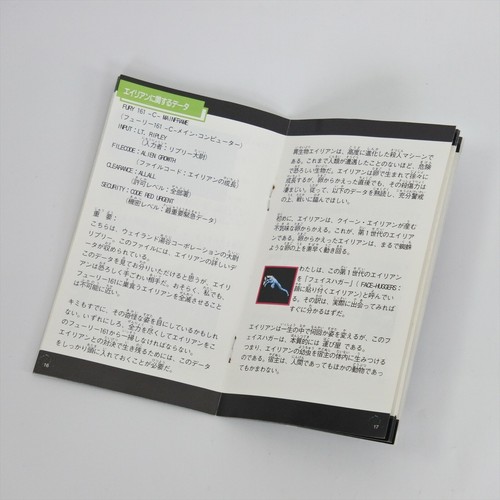 エイリアンに関するデータ
FURY 161 -C- MAINFRAME
(フューリー161 -C- メイン・コンピューター)
INPUT: LT. RIPLEY
(入力者:リプリー大尉)
FILECODE: ALIEN GROWTH
(ファイルコード:エイリアンの成長)
CLEARANCE: ALLALL
(許可レベル:全部署)
SECURITY: CODE RED URGENT
(機密レベル:最重要緊急データ)
重 要:
こちらは、ウェイランド湯谷コーポレーションの大尉
リプリー。このファイルには、エイリアンの詳しいデ
ータが収められている。
このデータを見てお分りいただけると思うが、エイリ
アンは恐ろしく手ごわい相手だ。おそらく、私でも、
フューリー161に巣食うエイリアンを全滅させること
は不可能に近い。
キミもすでに、その奇怪な姿を目にしているかもしれ
ない。いずれにしろ、全力を尽くしてエイリアンをこ
のフューリー161から一掃しなければならない。
エイリアンとの対決で生き残るためには、このデータ
をしっかり頭に入れておくことが必要だ。
16
異生物エイリアンは、高度に進化した殺人マシーンで
ある。これまで人類が遭遇したことのないほど、危険
で恐ろしい生物だ。エイリアンは卵で生まれて徐々に
成長するが、卵からかえった直後でも、その殺傷力は
凄まじい。従って、以下のデータを熟読し、充分警戒
の上、戦いに臨んでほしい。
初めに、エイリアンは、クイーン・エイリアンが産む
不気味な卵からかえる。これが、第1世代のエイリアン
である。卵からかえったエイリアンは、まるで蜘蛛の
ような卵の上を素早く動き回る。
わたしは、この第1世代のエイリアン
を「フェイスハガー」(FACE-HUGGERS:
顔に貼り付くエイリアン)と呼んでい
る。その訳は、実際に出会ってみれば
すぐに分かるはずだ。
エイリアンは一生の中で何回か姿を変えるが、このフ
ェイスハガーは、本質的には 運び屋 である。
つまり、エイリアンの幼虫を宿主の体内に生みつける
のである。宿主は、人間であってもほかの動物であっ
てもかまわない。
17